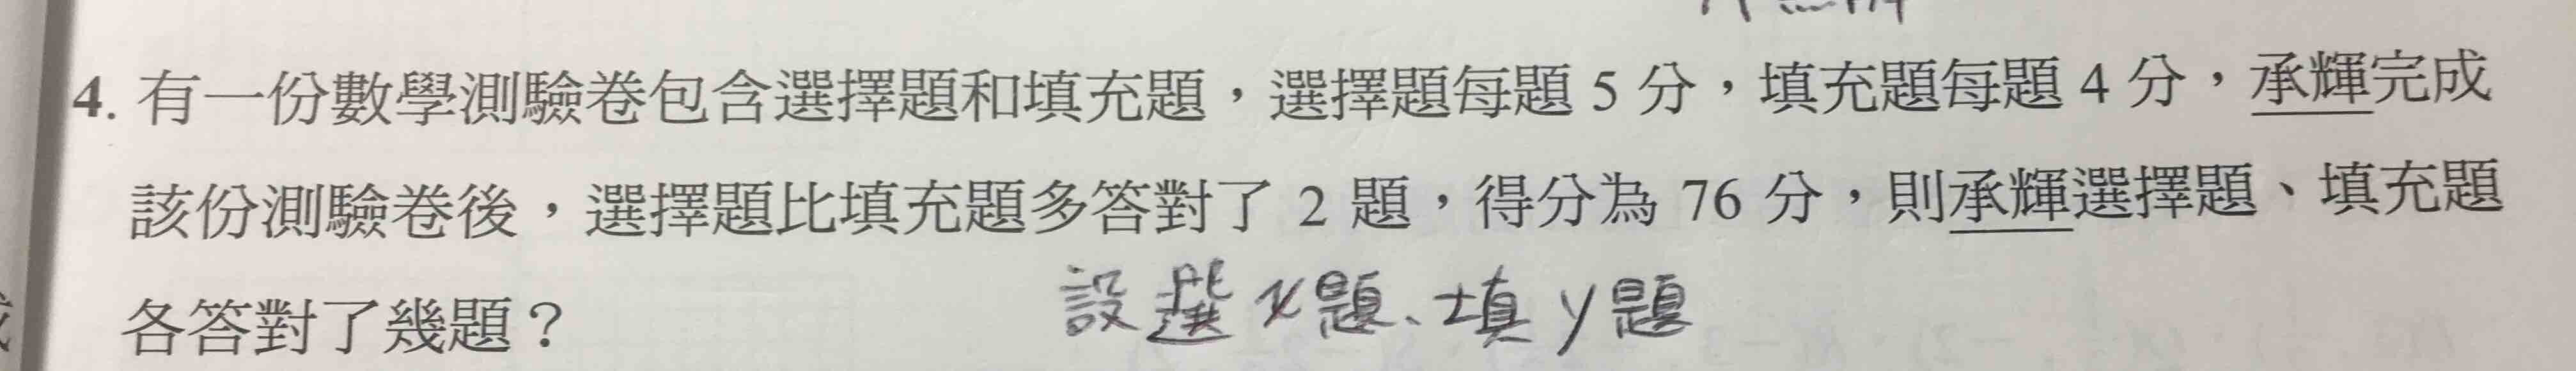 4. 有一份數學測驗卷包含選擇題和填充題，選擇題每題 5 分，填充題每題 4 分，承輝完成
該份測驗卷後，選擇題比填充題多答對了 2 題，得分為 76 分，則承輝選擇題、填充題
各答對了幾題？
設選 x 題、填 y 題